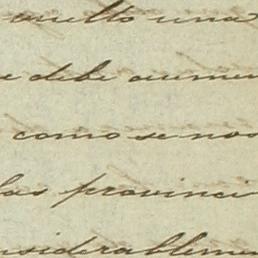 suelto una
e debe aumen
como se nos
las provinci
nsiderableme